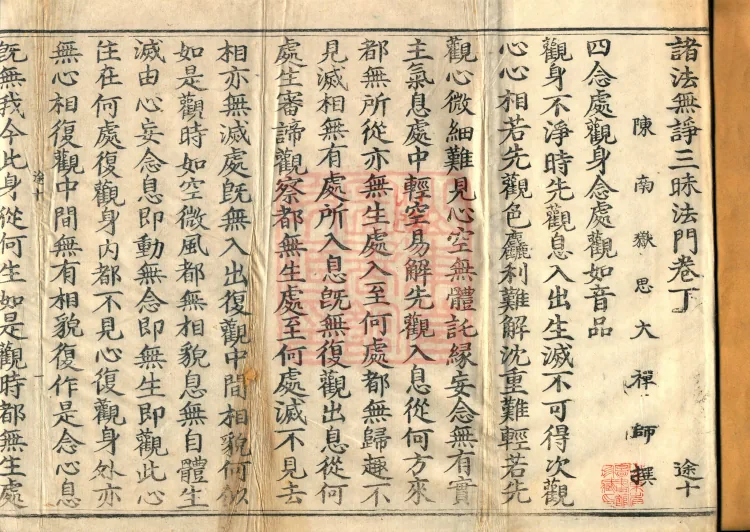 諸法無諍三昧法門卷丁 途十
陳南嶽思大禪師撰
四念處觀身念處觀如音品
觀身不淨時先觀息入出生滅不可得次觀
心心相若先觀色麤利難解沈重難輕若先
觀心微細難見心空無體託緣妄念無有實
主氣息處中輕空易解先觀入息從何方來
都無所從亦無生處入至何處都無歸趣不
見滅相無有處所入息旣無復觀出息從何
處生審諦觀察都無生處至何處滅不見去
相亦無滅處旣無入出復觀中間相貌何似
如是觀時如空微風都無相貌息無自體生
滅由心妄念息即動無念即無生即觀此心
住在何處復觀身內都不見心復觀身外亦
無心相復觀中間無有相貌復作是念心息
途十
旣無我今此身從何生如是觀時都無生處